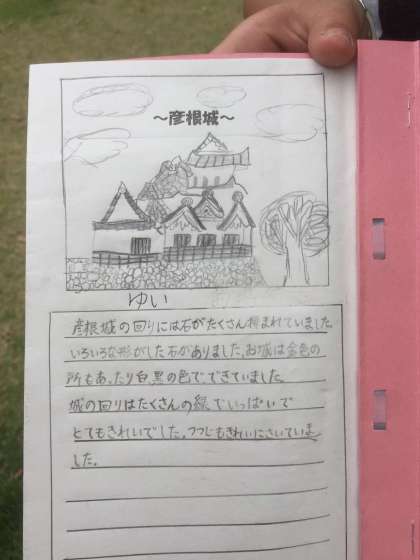 ～彦根城～
ゆい
彦根城の回りには石がたくさん積まれていました。
いろいろな形がした石がありました。お城は金色の
所もあったり白黒の色でできていました。
城の回りはたくさんの緑でいっぱいで
とてもきれいでした。つつじもきれいにさいていま
した。